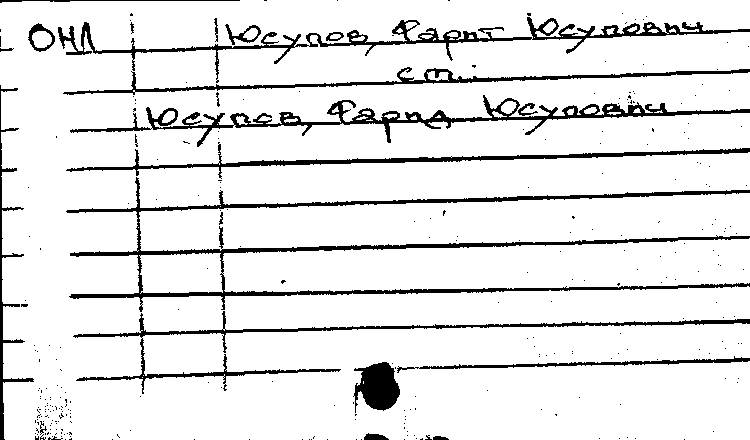 ОНЛ Юсупов, Фарит Юсупович
см.:
Юсупов, Фарид Юсупович